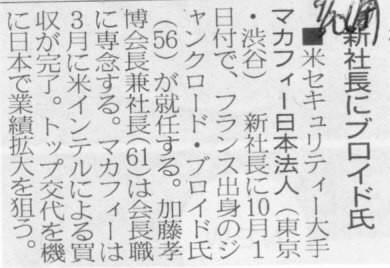 新社長にブロイド氏
■米セキュリティー大手
マカフィー日本法人（東京
・渋谷）　新社長に10月1
日付で、フランス出身のジ
ャンクロード・ブロイド氏
（56）が就任する。加藤孝
博会長兼社長（61）は会長職
に専念する。マカフィーは
3月に米インテルによる買
収が完了。トップ交代を機
に日本で業績拡大を狙う。